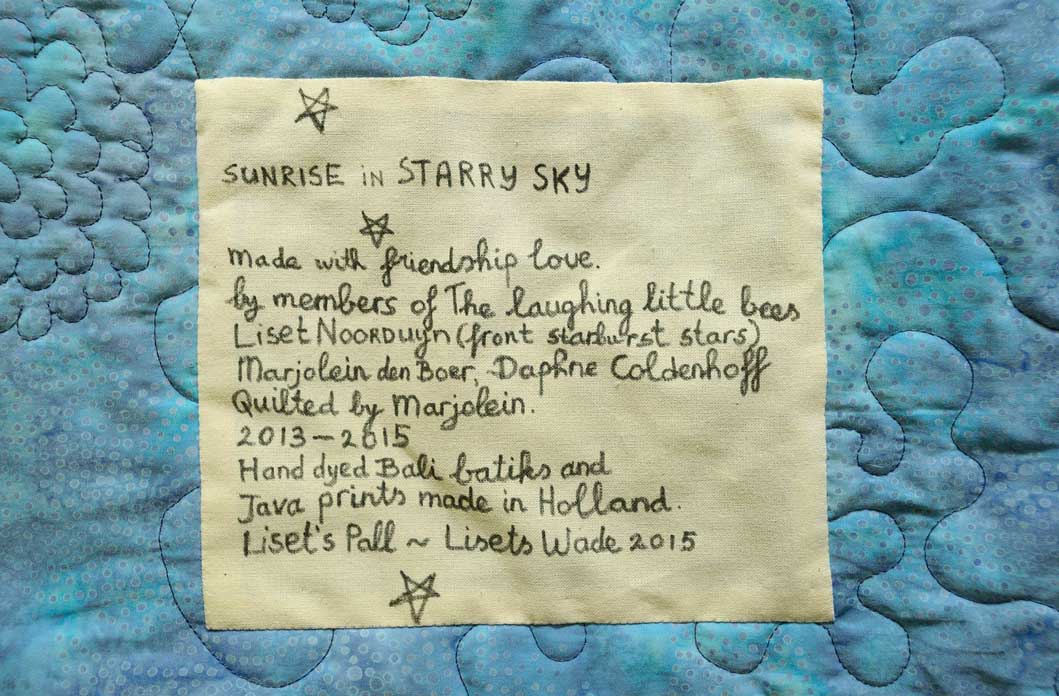 SUNRISE in STARRY SKY
made with friendship love.
by members of The laughing little bees
Liset Noorduyn (front starburst stars)
Marjolein den Boer, Daphne Coldenhoff
Quilted by Marjolein.
2013 – 2015
Hand dyed Bali batiks and
Java prints made in Holland.
Liset's Pall ~ Lisets Wade 2015